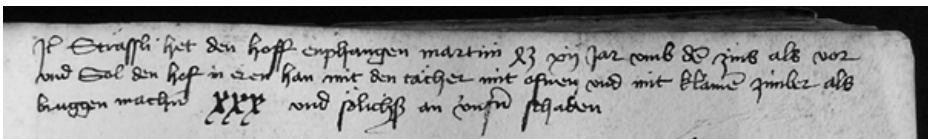 Jtem Strässli het den hoff enphangen martini xij Jar vmb den zins als vor
vnd Sol den hof in eren han mit den tächer mit ofnen vnd mit klainem zimber als
bruggen machen xxx vnd sölichs an vnsern schaden